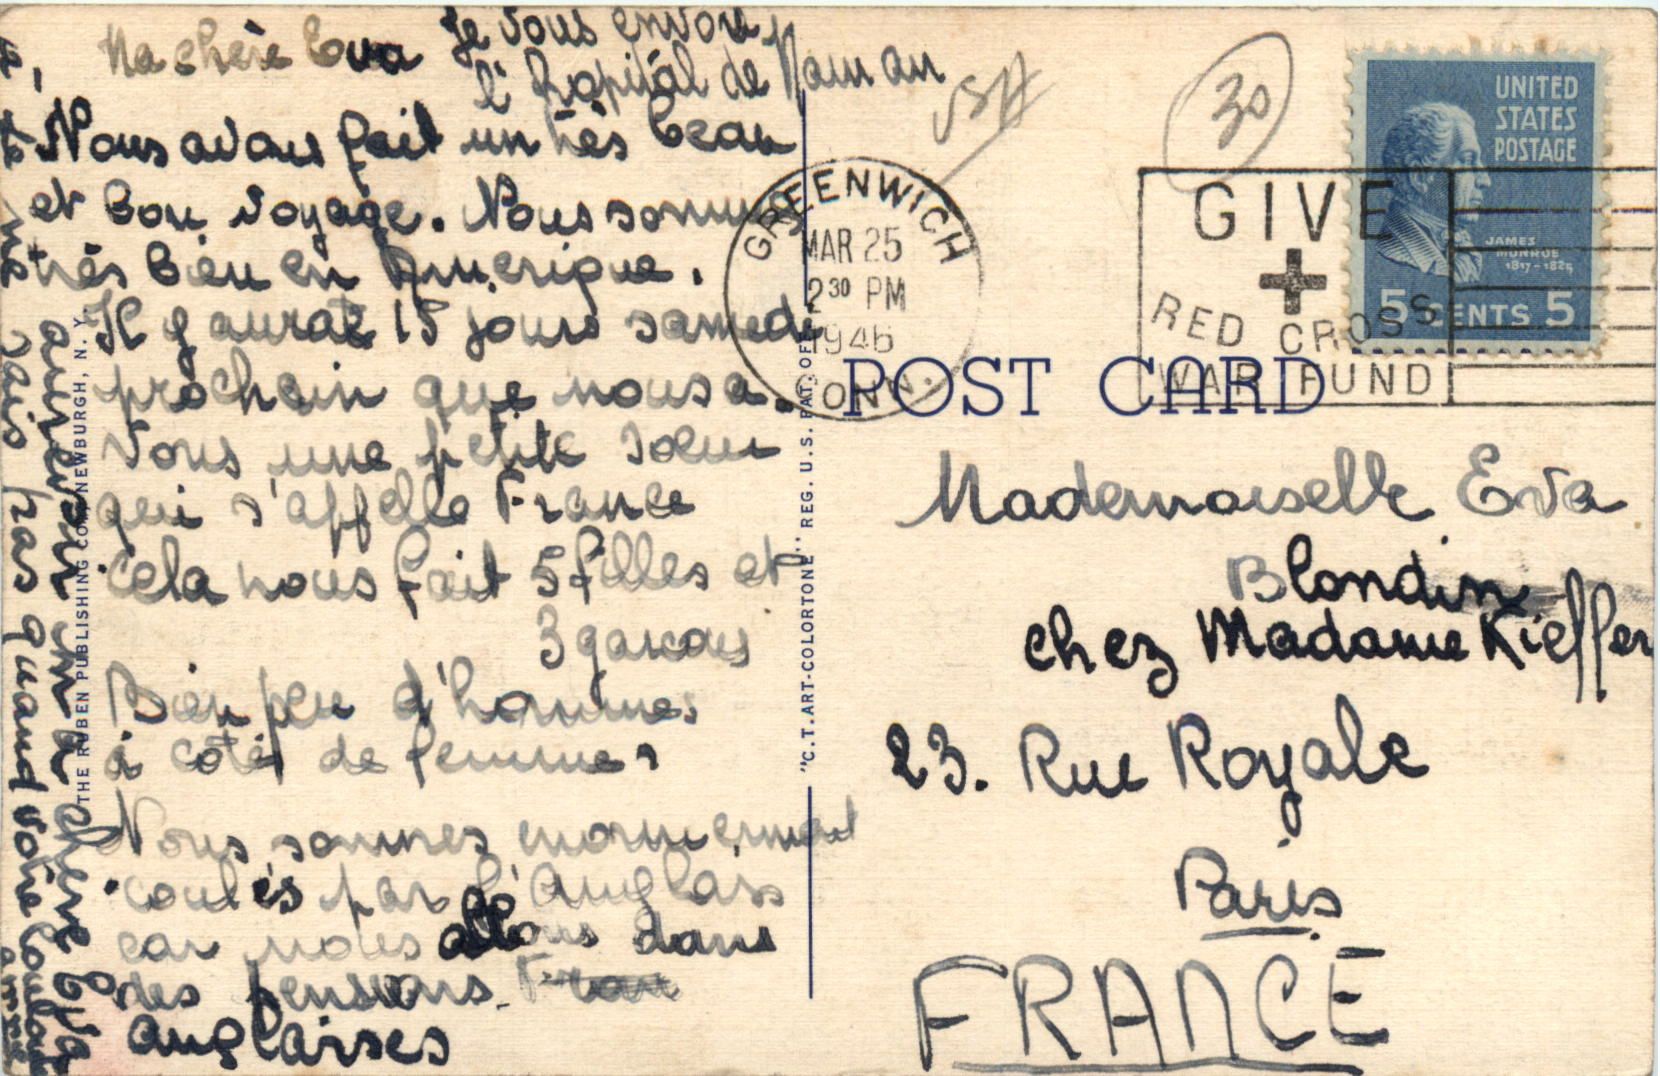 Ma chère Eva Je vous envoie
l'hopitál de Maman
Nous avons fait un très beau
et bon voyage. Nous sommes
très bien en Amerique.
Il y aurat 15 jours samedi
prochain que nous a.
vons une petite soeur
qui s'appelle France
cela nous fait 5 filles et
3 garcons
Bien peu d'hommes
à coté de femmes
Nous sommes enormement
coulés par l'anglais
car nous allons dans
des pensions
anglaises
je ne sais pas quand votre
anniversaire ma chère Eva
THE RUBEN PUBLISHING CO., NEWBURGH, N. Y.
"C.T. ART-COLORTONE" REG. U.S. PAT. OFF.
POST CARD
USA
30
GREENWICH
MAR 25
2 30 PM
1946
CONN.
GIVE
RED CROSS
WAR FUND
UNITED
STATES
POSTAGE
JAMES
MONROE
1817-1825
5 CENTS 5
Mademoiselle Eva
Blondin
chez Madame Kieffer
23. Rue Royale
Paris
FRANCE